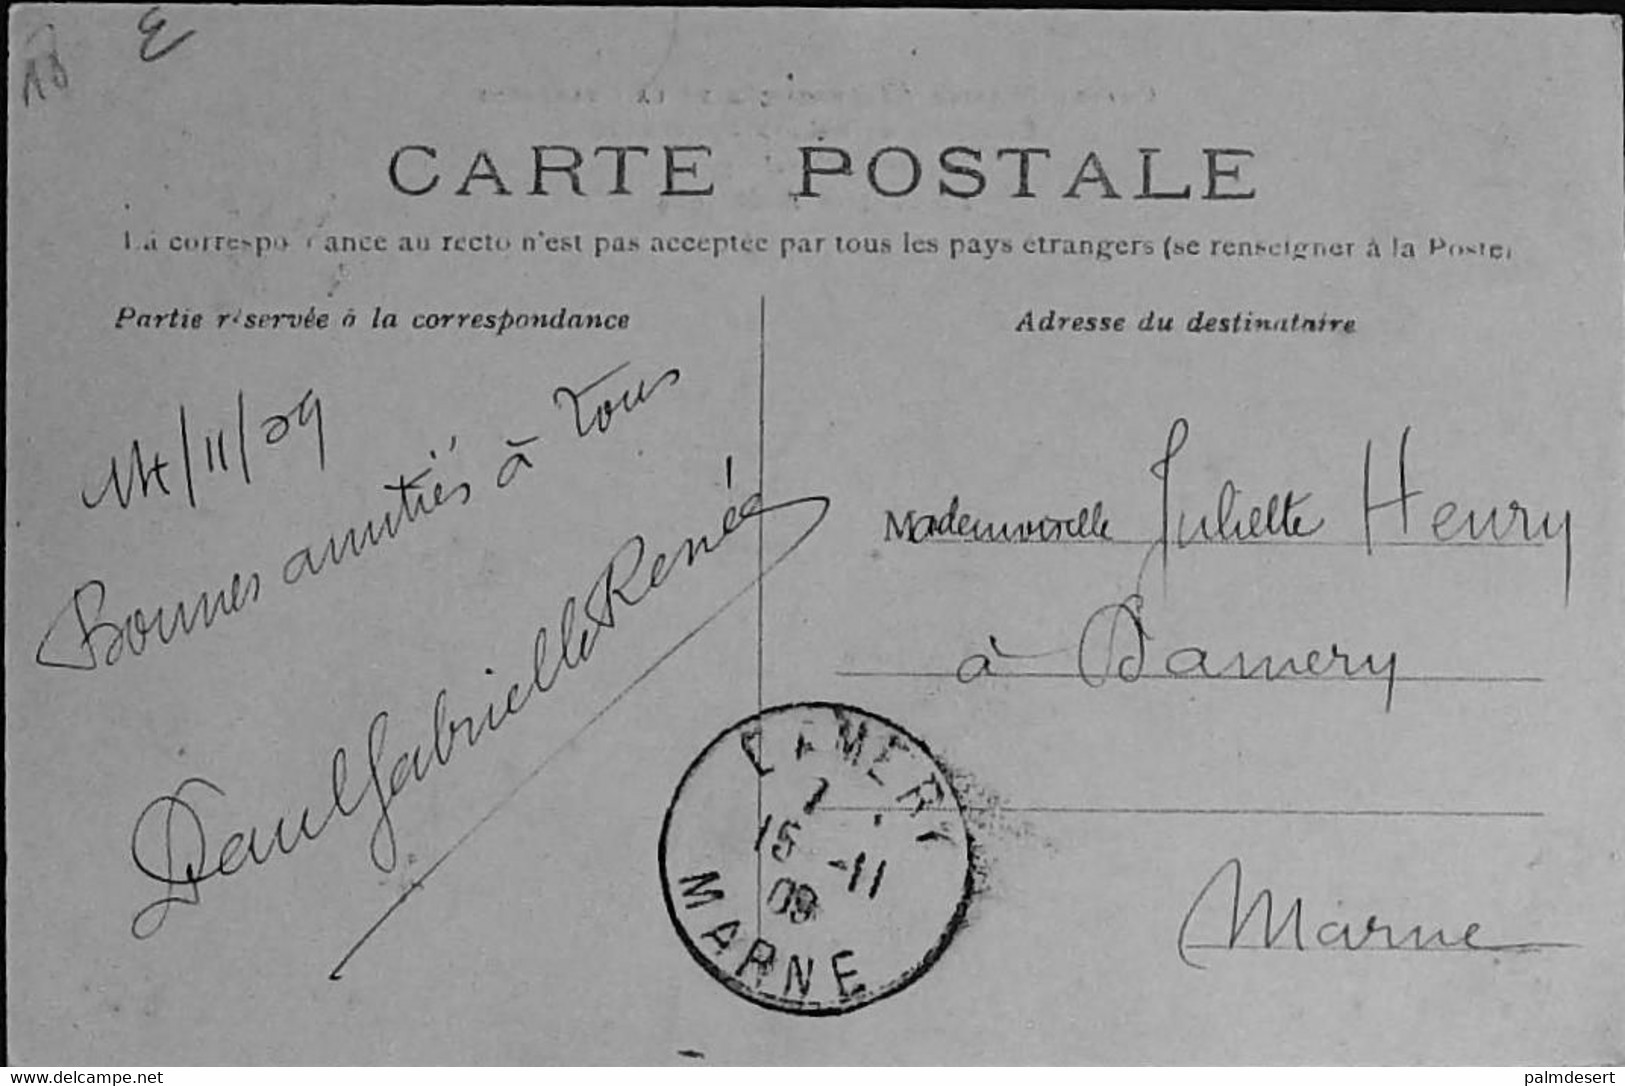 18
E
CARTE POSTALE
La correspondance au recto n'est pas acceptée par tous les pays étrangers (se renseigner à la Poste)
Partie réservée à la correspondance
Adresse du destinataire
14/11/09
Bonnes amitiés à tous
Paul Gabrielle Renée
Mademoiselle Juliette Henry
à Damery
Marne
DAMERY
7
15 -11
09
MARNE
www.delcampe.net
palmdesert